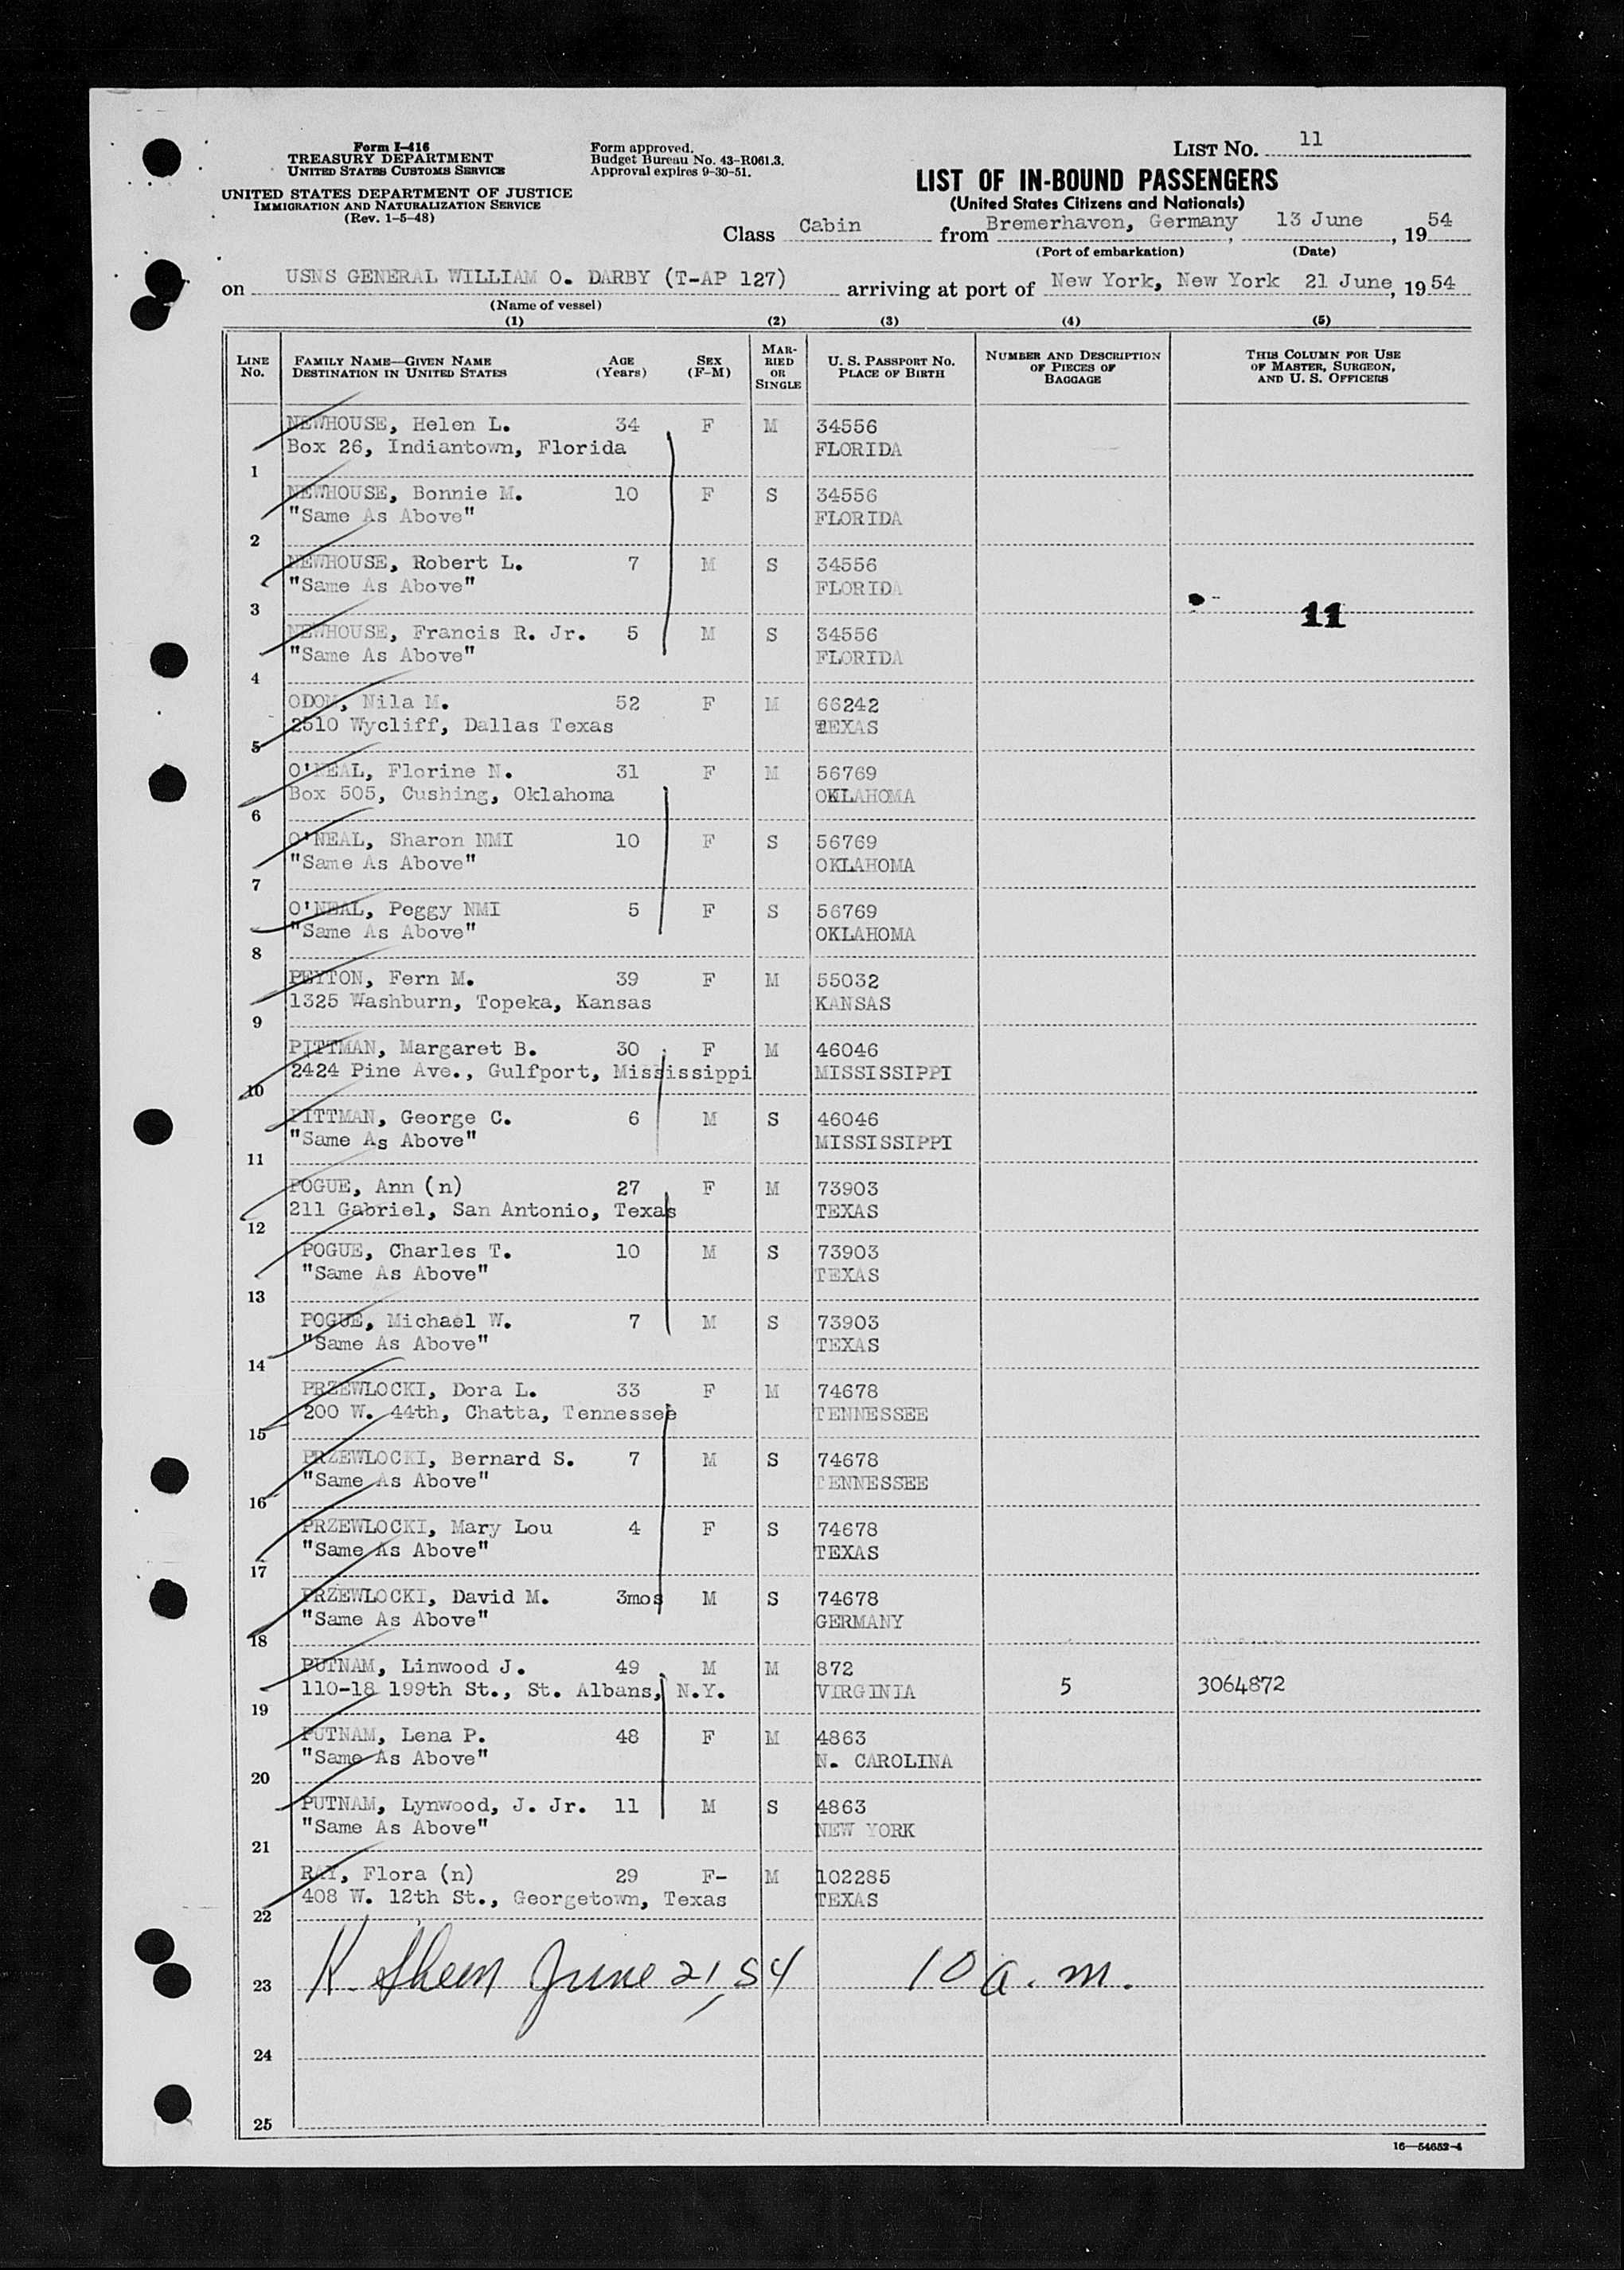 Form I-416
TREASURY DEPARTMENT
UNITED STATES CUSTOMS SERVICE
UNITED STATES DEPARTMENT OF JUSTICE
IMMIGRATION AND NATURALIZATION SERVICE
(Rev. 1-5-48)
Form approved.
Budget Bureau No. 43-R061.3.
Approval expires 9-30-51.
LIST NO. 11
LIST OF IN-BOUND PASSENGERS
(United States Citizens and Nationals)
Class Cabin from Bremerhaven, Germany, 13 June, 1954
(Port of embarkation) (Date)
on USNS GENERAL WILLIAM O. DARBY (T-AP 127) arriving at port of New York, New York 21 June, 1954
(Name of vessel)
(1) (2) (3) (4) (5)
LINE NO. FAMILY NAME—GIVEN NAME DESTINATION IN UNITED STATES AGE (Years) SEX (F-M) MARRIED OR SINGLE U. S. PASSPORT NO. PLACE OF BIRTH NUMBER AND DESCRIPTION OF PIECES OF BAGGAGE THIS COLUMN FOR USE OF MASTER, SURGEON, AND U. S. OFFICERS
NEWHOUSE, Helen L. 34 F M 34556
Box 26, Indiantown, Florida FLORIDA
1
NEWHOUSE, Bonnie M. 10 F S 34556
"Same As Above" FLORIDA
2
NEWHOUSE, Robert L. 7 M S 34556
"Same As Above" FLORIDA
3 11
NEWHOUSE, Francis R. Jr. 5 M S 34556
"Same As Above" FLORIDA
4
ODOM, Nila M. 52 F M 66242
2510 Wycliff, Dallas Texas TEXAS
5
O'NEAL, Florine N. 31 F M 56769
Box 505, Cushing, Oklahoma OKLAHOMA
6
O'NEAL, Sharon NMI 10 F S 56769
"Same As Above" OKLAHOMA
7
O'NEAL, Peggy NMI 5 F S 56769
"Same As Above" OKLAHOMA
8
PEYTON, Fern M. 39 F M 55032
1325 Washburn, Topeka, Kansas KANSAS
9
PITTMAN, Margaret B. 30 F M 46046
2424 Pine Ave., Gulfport, Mississippi MISSISSIPPI
10
PITTMAN, George C. 6 M S 46046
"Same As Above" MISSISSIPPI
11
POGUE, Ann (n) 27 F M 73903
211 Gabriel, San Antonio, Texas TEXAS
12
POGUE, Charles T. 10 M S 73903
"Same As Above" TEXAS
13
POGUE, Michael W. 7 M S 73903
"Same As Above" TEXAS
14
PRZEWLOCKI, Dora L. 33 F M 74678
200 W. 44th, Chatta, Tennessee TENNESSEE
15
PRZEWLOCKI, Bernard S. 7 M S 74678
"Same As Above" TENNESSEE
16
PRZEWLOCKI, Mary Lou 4 F S 74678
"Same As Above" TEXAS
17
PRZEWLOCKI, David M. 3mos M S 74678
"Same As Above" GERMANY
18
PUTNAM, Linwood J. 49 M M 872
110-18 199th St., St. Albans, N.Y. VIRGINIA 5 3064872
19
PUTNAM, Lena P. 48 F M 4863
"Same As Above" N. CAROLINA
20
PUTNAM, Lynwood, J. Jr. 11 M S 4863
"Same As Above" NEW YORK
21
RAY, Flora (n) 29 F- M 102285
408 W. 12th St., Georgetown, Texas TEXAS
22
23 K. Sheen June 21, 54 10 a.m.
24
25
16—54652-4